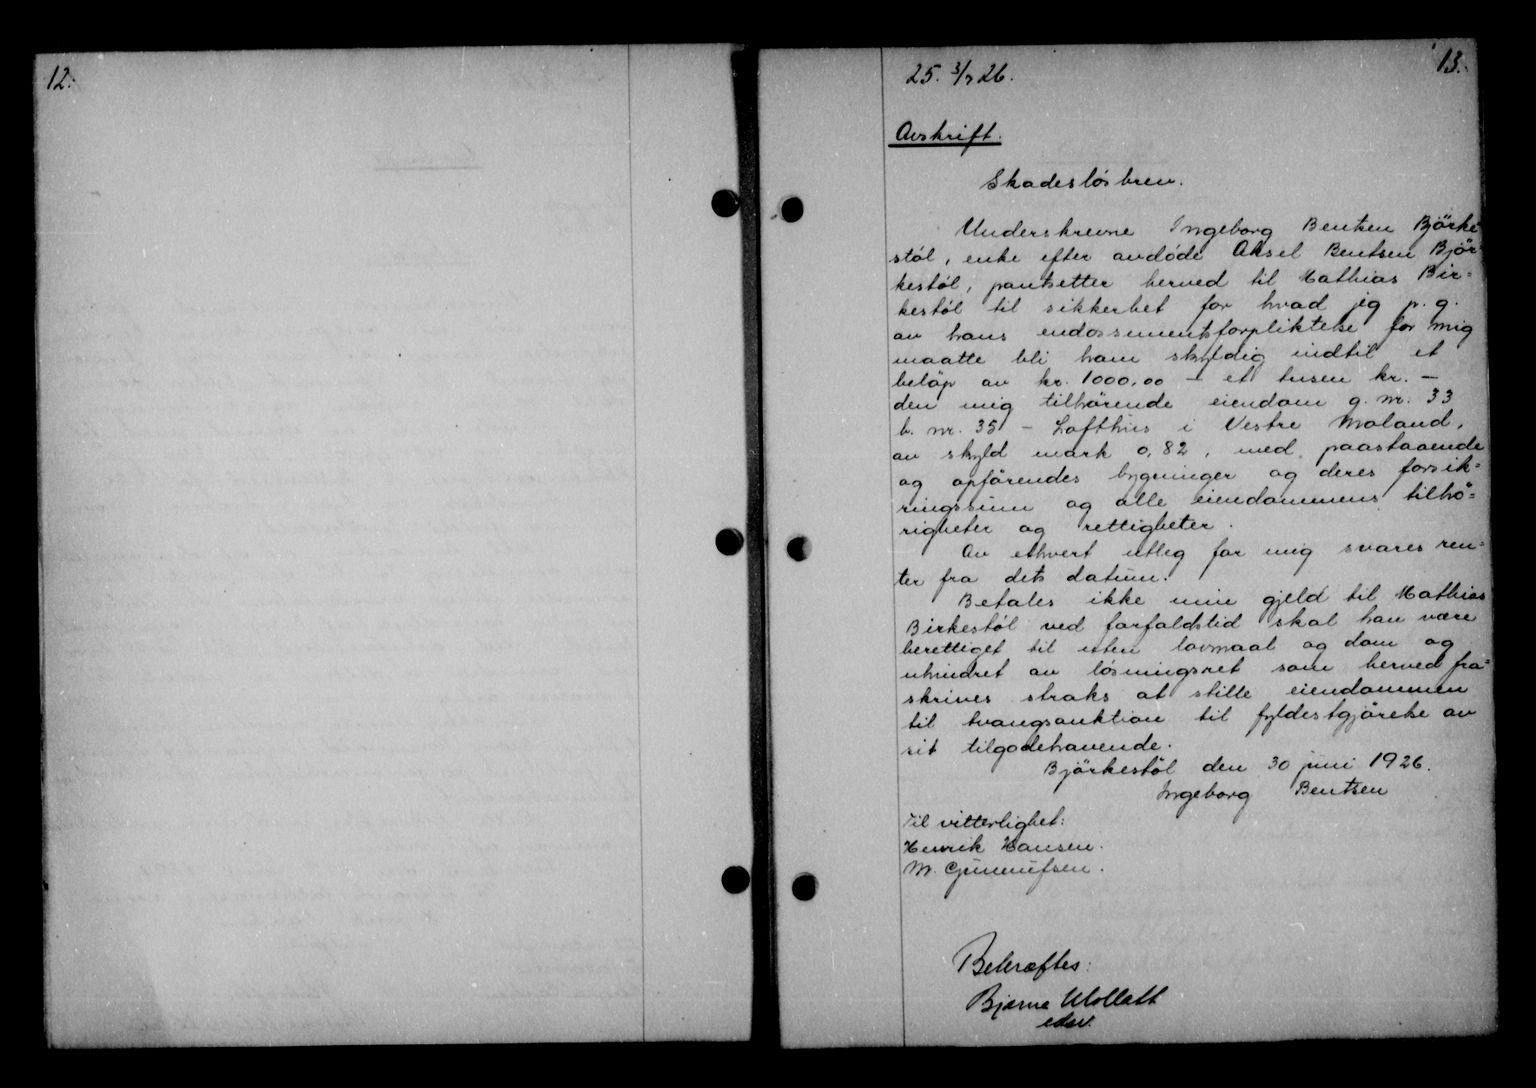 12.
13.
25. 3/7 26.
Avskrift.
Skadeslösbrev.
Underskrevne Ingeborg Bentsen Björke
stöl, enke efter avdöde Aksel Bentsen Björ-
kestöl, pantsetter herved til Mathias Bir-
kestöl til sikkerhet for hvad jeg p. g.
av hans endossementsforpliktelse for mig
maatte bli ham skyldig indtil et
beløp av kr. 1000,00 – et tusen kr. –
den mig tilhörende eiendom g. nr. 33
b. nr. 35 – Lofthus i Vestre Moland,
av skyld mark 0,82, med paastaaende
og opförendes bygninger og deres forsik-
ringssum og alle eiendommens tilhö-
righeter og rettigheter.
Av ethvert utleg for mig svares ren-
ter fra dets datum.
Betales ikke min gjeld til Mathias
Birkestöl ved forfaldstid skal han være
berettiget til uten lovmaal og dom og
uhindret av lösningsret som herved fra-
skrives straks at stille eiendommen
til tvangsauktion til fyldestgjörelse av
sit tilgodehavende.
Björkestöl den 30 juni 1926.
Ingeborg Bentsen
Til vitterlighet:
Henrik Hansen.
M. Gunnufsen.
Bekræftes:
Bjarne Mollatt
edsv.